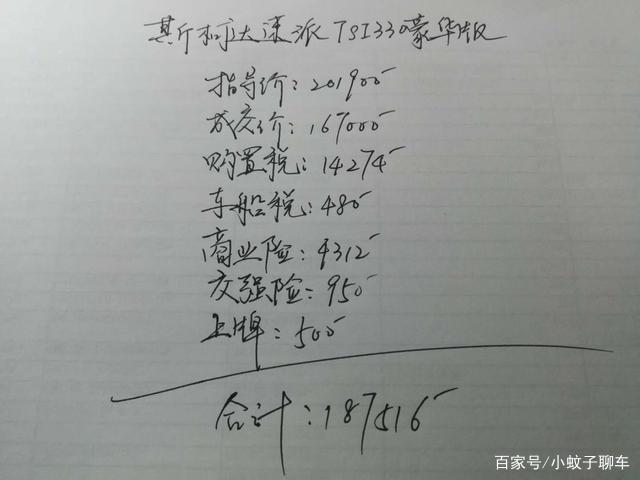 斯柯达速派TSI330豪华版
指导价:201900
成交价:167000
购置税:14274
车船税:480
商业险:4312
交强险:950
上牌:500
合计:187516
百家号/小蚊子聊车